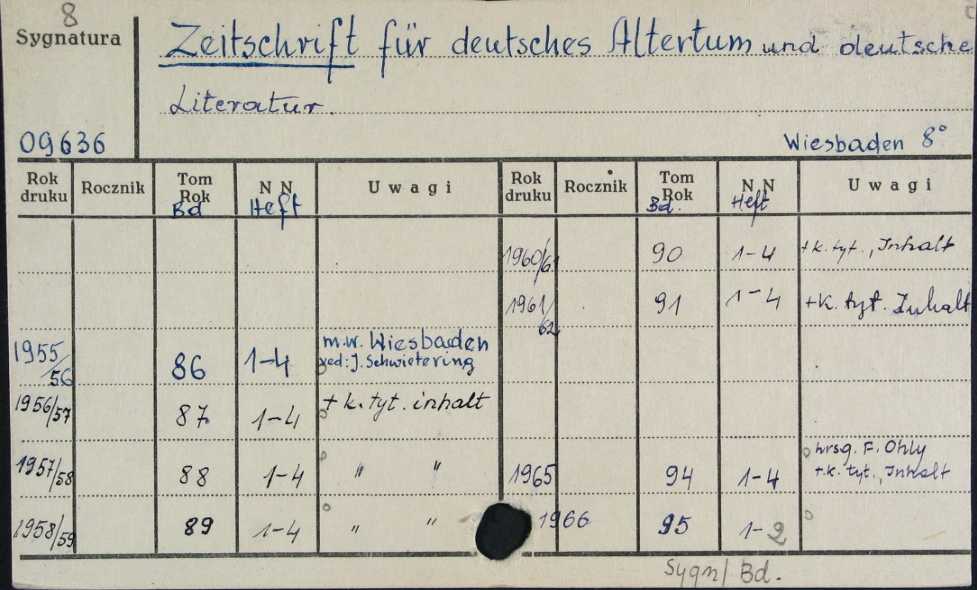 8
Sygnatura
Zeitschrift für deutsches Altertum und deutsche
Literatur.
09636
Wiesbaden 8°
Rok druku Rocznik Tom Rok Bd N N Heft Uwagi Rok druku Rocznik Tom Rok Bd. N N Heft Uwagi
1960/61 90 1-4 +k. tyt., Inhalt
1961/62 91 1-4 +k. tyt. Inhalt
1955/56 86 1-4 m.w. Wiesbaden
red: J. Schwietering
1956/57 87 1-4 + k. tyt. inhalt
1957/58 88 1-4 " " 1965 94 1-4 hrsg. F. Ohly
+k. tyt., Inhalt
1958/59 89 1-4 " " 1966 95 1-2
Sygn/ Bd.